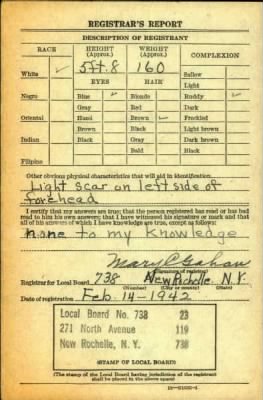 REGISTRAR'S REPORT
DESCRIPTION OF REGISTRANT
RACE HEIGHT (Approx.) WEIGHT (Approx.) COMPLEXION
5 ft. 8 160
White ✓ EYES HAIR Sallow
Light
Negro Blue ✓ Blonde Ruddy ✓
Gray Red Dark
Oriental Hazel Brown ✓ Freckled
Brown Black Light brown
Indian Black Gray Dark brown
Bald Black
Filipino
Other obvious physical characteristics that will aid in identification
Light scar on left side of
forehead
I certify that my answers are true; that the person registered has read or has had
read to him his own answers; that I have witnessed his signature or mark and that
all of his answers of which I have knowledge are true, except as follows:
none to my knowledge
Mary C. Gahan
(Signature of registrar)
Registrar for Local Board 738 New Rochelle, N.Y.
(Number) (City or county) (State)
Date of registration Feb. 14-1942
Local Board No. 738 23
271 North Avenue 119
New Rochelle, N. Y. 738
(STAMP OF LOCAL BOARD)
(The stamp of the Local Board having jurisdiction of the registrant
shall be placed in the above space)